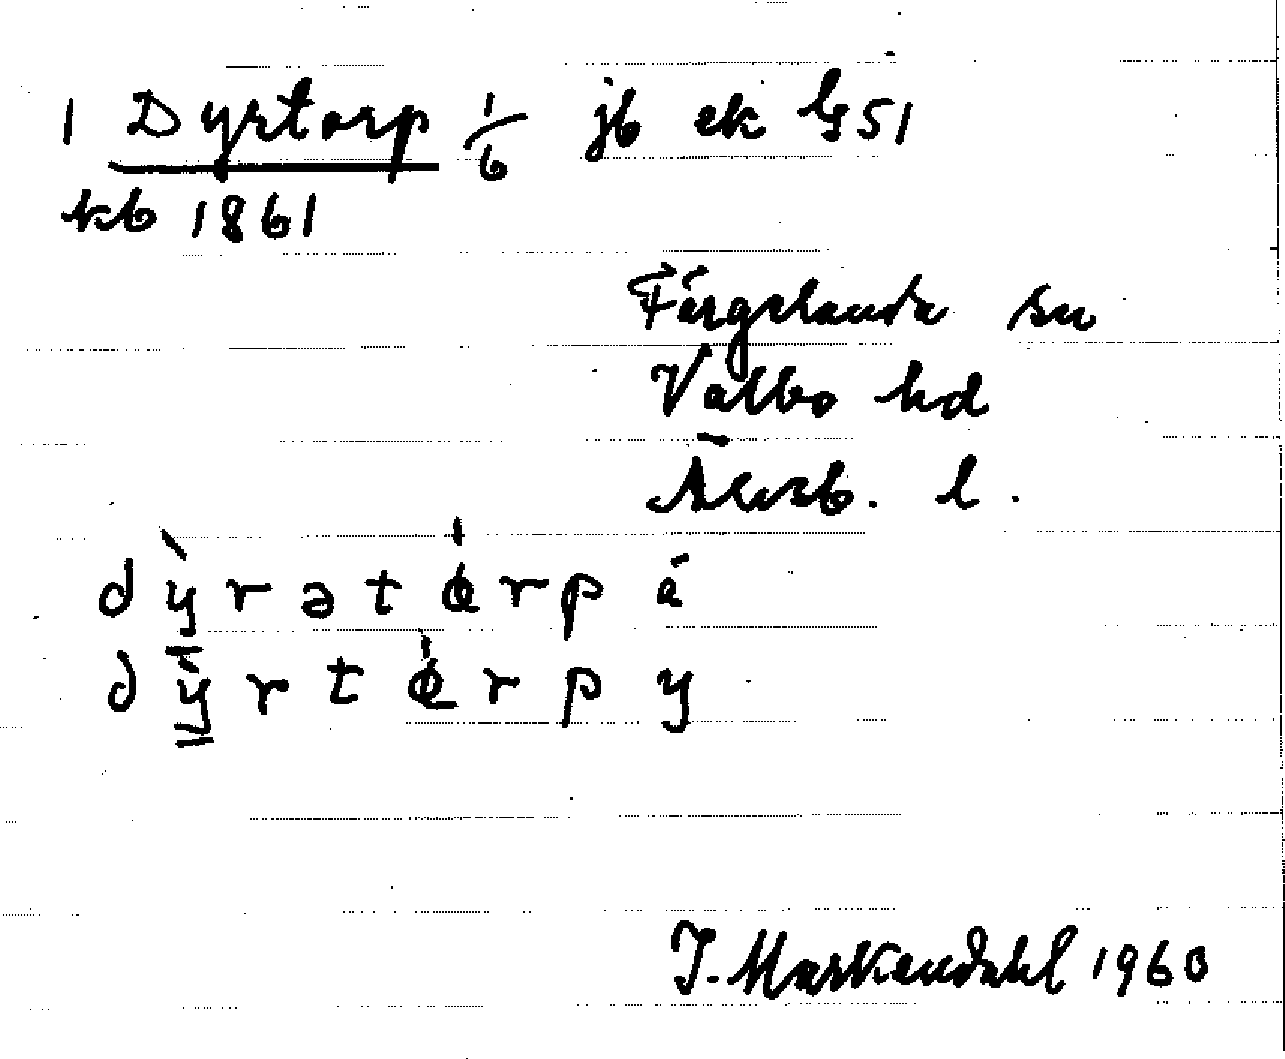 1 Dyrtorp 1/6 jb ek G51
kb 1861
Färgelanda sn
Valbo hd
Älvsb. l.
dỳrətɵ́rp á
dȳrtɵ́rp y
J. Markendahl 1960